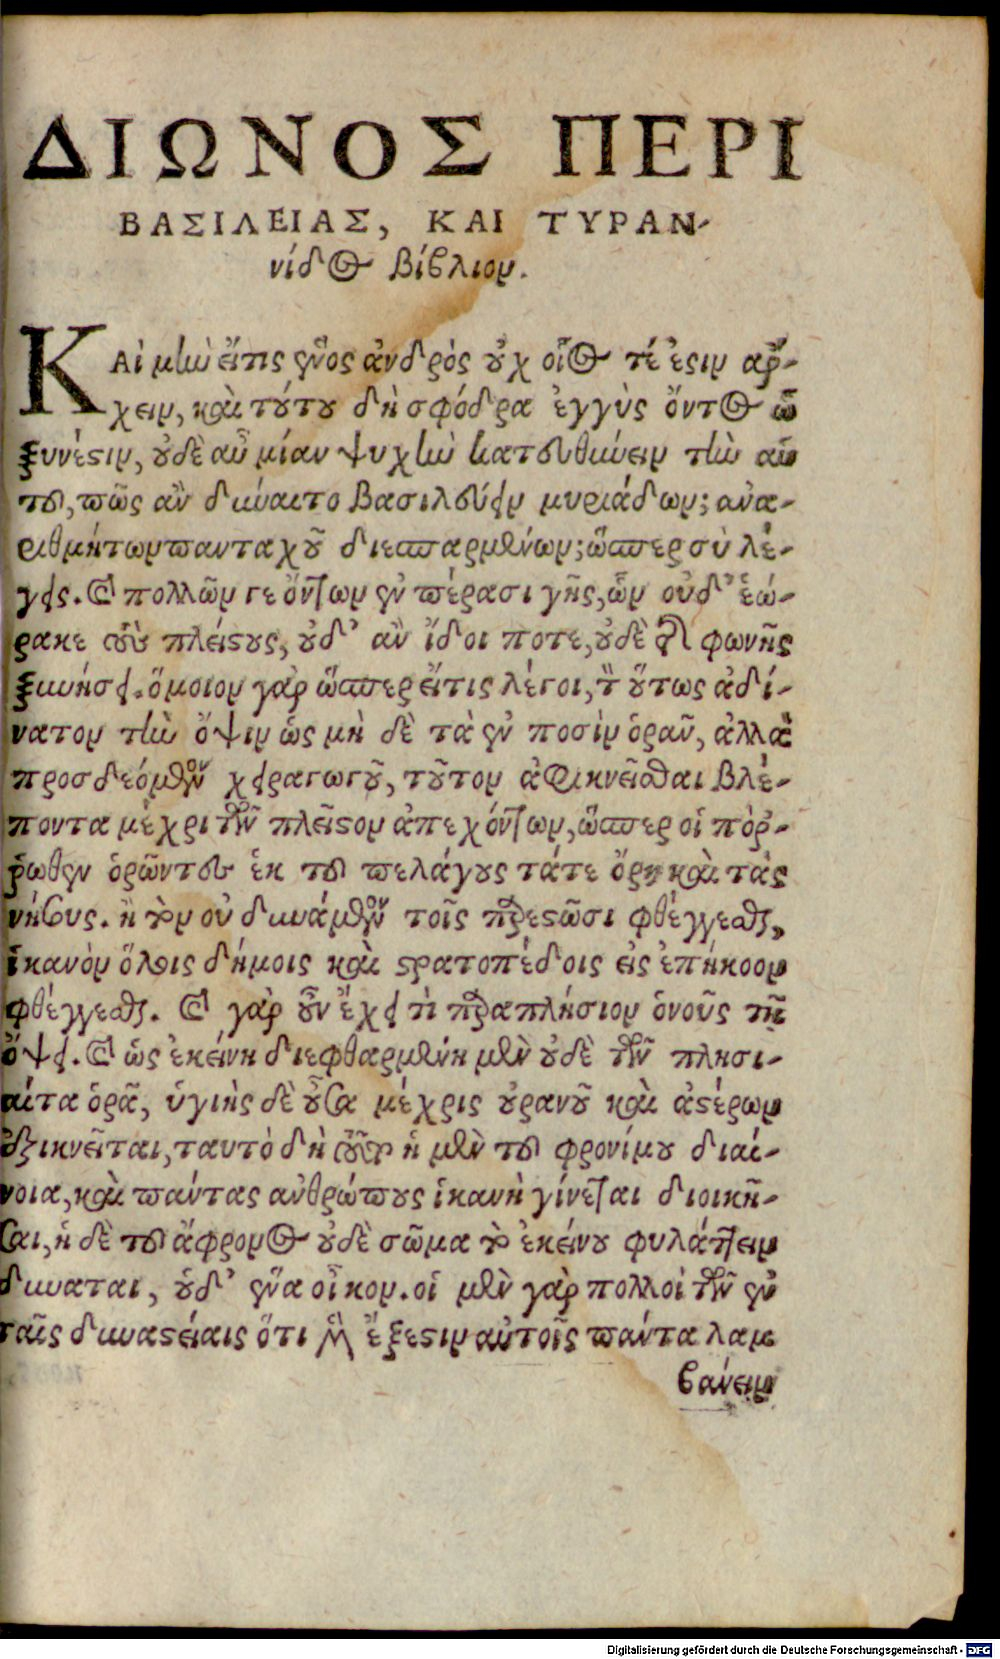 ΔΙΩΝΟΣ ΠΕΡΙ
ΒΑΣΙΛΕΙΑΣ, ΚΑΙ ΤΥΡΑΝ-
νίδος βίβλιον.
ΚΑὶ μὴν εἴτις ἑνὸς ἀνδρὸς οὐχ οἷός τέ ἐστιν ἄρ-
χειν, καὶ τούτου δὴ σφόδρα ἐγγὺς ὄντος ᾧ
ξυνέστιν, οὐδὲ αὖ μίαν ψυχὴν κατευθύνειν τὴν αὑ
τοῦ, πῶς ἂν δύναιτο βασιλεύειν μυριάδων; ἀνα-
ριθμήτων πανταχοῦ διεσπαρμένων; ὥσπερ σὺ λέ-
γεις. καὶ πολλῶν γε ὄντων ἐν πέρασι γῆς, ὧν οὐδ' ἑώ-
ρακε τοὺς πλείστους, οὐδ' ἂν ἴδοι ποτε, οὐδὲ τῆς φωνῆς
ξυνήσει. ὅμοιον γὰρ ὥσπερ εἴτις λέγοι, τὸν οὕτως ἀδύ-
νατον τὴν ὄψιν ὡς μὴ δὲ τὰ ἐν ποσὶν ὁρᾶν, ἀλλὰ
προσδεόμενον χειραγωγοῦ, τοῦτον ἀφικνεῖσθαι βλέ-
ποντα μέχρι τῶν πλεῖστον ἀπεχόντων, ὥσπερ οἱ πόρ-
ρωθεν ὁρῶντες ἐκ τοῦ πελάγους τάτε ὄρη καὶ τὰς
νήσους. ἢ τὸν οὐ δυνάμενον τοῖς παρεστῶσι φθέγγεσθαι,
ἱκανὸν ὅλοις δήμοις καὶ στρατοπέδοις εἰς ἐπήκοον
φθέγγεσθαι. καὶ γὰρ οὖν ἔχει τὶ παραπλήσιον ὁ νοῦς τῇ
ὄψει. καὶ ὡς ἐκείνη διεφθαρμένη μὲν οὐδὲ τῶν πλησι-
αίτατα ὁρᾷ, ὑγιὴς δὲ οὖσα μέχρις οὐρανοῦ καὶ ἀστέρων
ἐξικνεῖται, ταυτὸ δὴ τοῦτο ἡ μὲν τοῦ φρονίμου διά-
νοια, καὶ πάντας ἀνθρώπους ἱκανὴ γίνεται διοικῆ-
σαι, ἡ δὲ τοῦ ἄφρονος οὐδὲ σῶμα τὸ ἐκείνου φυλάττειν
δύναται, οὐδ' ἕνα οἶκον. οἱ μὲν γὰρ πολλοὶ τῶν ἐν
ταῖς δυναστείαις ὅτι μὲν ἔξεστιν αὐτοῖς πάντα λαμ
βάνειν
Digitalisierung gefördert durch die Deutsche Forschungsgemeinschaft - DFG